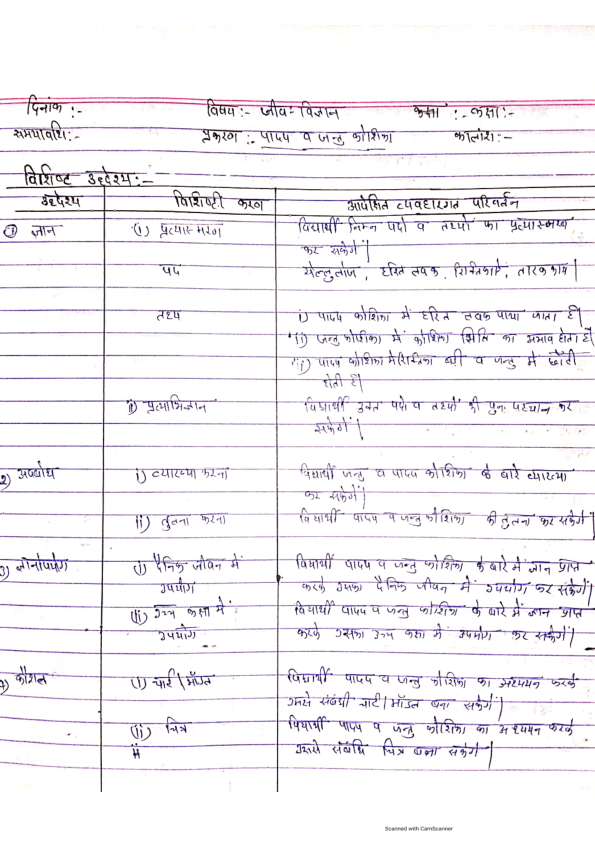 दिनांक :- विषय :- जीव-विज्ञान कक्षा :- कक्षा:-
समयावधि:- प्रकरण : पादप व जन्तु कोशिका कालांश:-
विशिष्ट उद्देश्य:-
उद्देश्य विशिष्टी करण आपेक्षित व्यवहारगत परिवर्तन
① ज्ञान (i) प्रत्यास्मरण विद्यार्थी निम्न पदो व तथ्यों का प्रत्यास्मरण
कर सकेगें।
पद सेल्लुलोज, हरित लवक, रिक्तिकाऐं, तारककाय।
तथ्य i) पादप कोशिका में हरित लवक पाया जाता है।
ii) जन्तु कोशिका में कोशिका भित्ति का अभाव होता है।
iii) पादप कोशिका में रिक्तिका बड़ी व जन्तु में छोटी
होती है।
ii) प्रत्याभिज्ञान विद्यार्थी उक्त पदो व तथ्यों की पुनः पहचान कर
सकेगें।
2) अवबोध i) व्याख्या करना विद्यार्थी जन्तु व पादप कोशिका के बारे व्याख्या
कर सकेगें।
ii) तुलना करना विद्यार्थी पादप व जन्तु कोशिका की तुलना कर सकेगें।
3) ज्ञानोपयोग (i) दैनिक जीवन में विद्यार्थी पादप व जन्तु कोशिका के बारे में ज्ञान प्राप्त
उपयोग करके उसका दैनिक जीवन में उपयोग कर सकेगें।
(ii) उच्च कक्षा में विद्यार्थी पादप व जन्तु कोशिका के बारे में ज्ञान प्राप्त
उपयोग करके उसका उच्च कक्षा में उपयोग कर सकेगें।
कौशल (i) चार्ट/मॉडल विद्यार्थी पादप व जन्तु कोशिका का अध्ययन करके
उससे संबंधी चार्ट/मॉडल बना सकेगें।
(ii) चित्र विद्यार्थी पादप व जन्तु कोशिका का अध्ययन करके
ii उससे संबंधि चित्र बना सकेगें।
Scanned with CamScanner